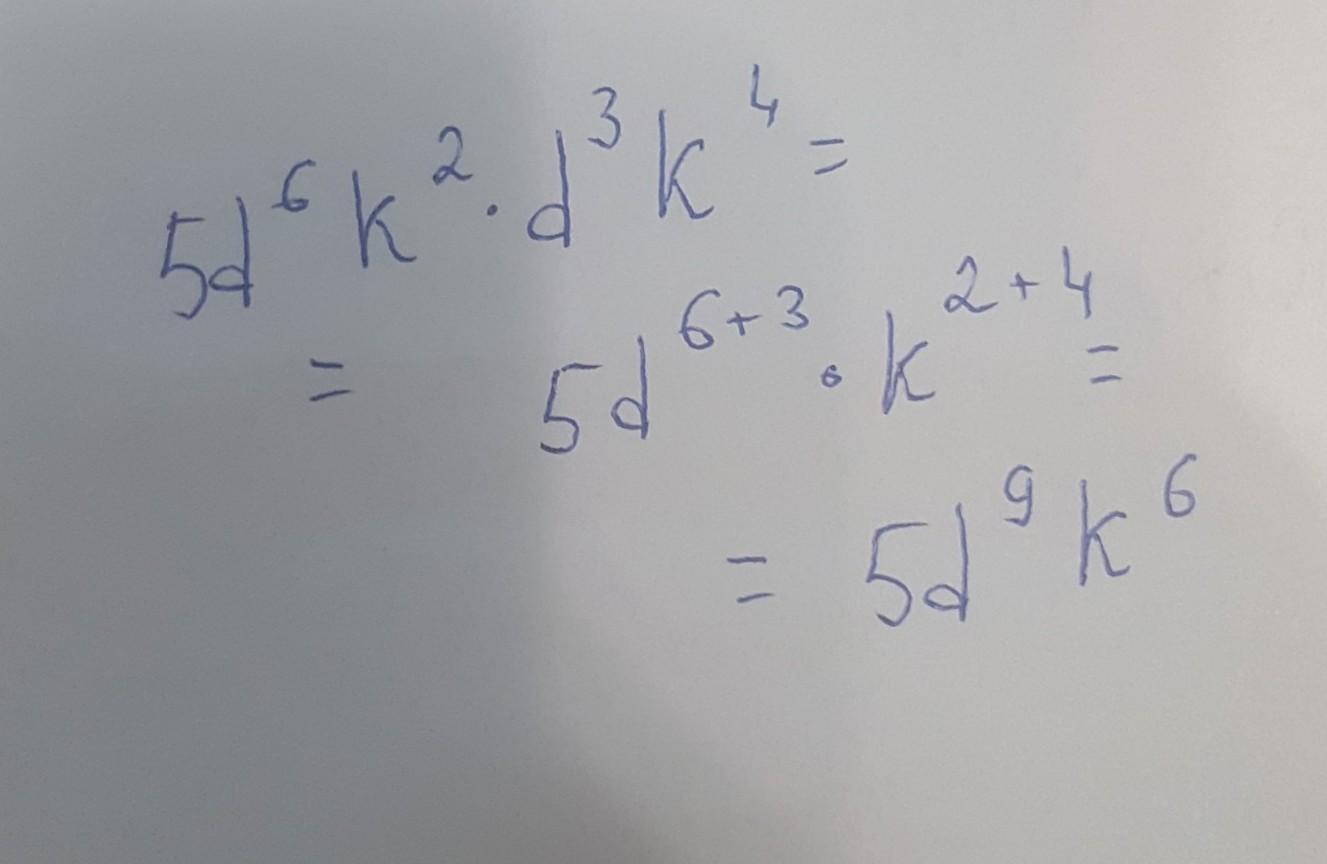 5d⁶k²·d³k⁴=
= 5d⁶⁺³·k²⁺⁴=
= 5d⁹k⁶